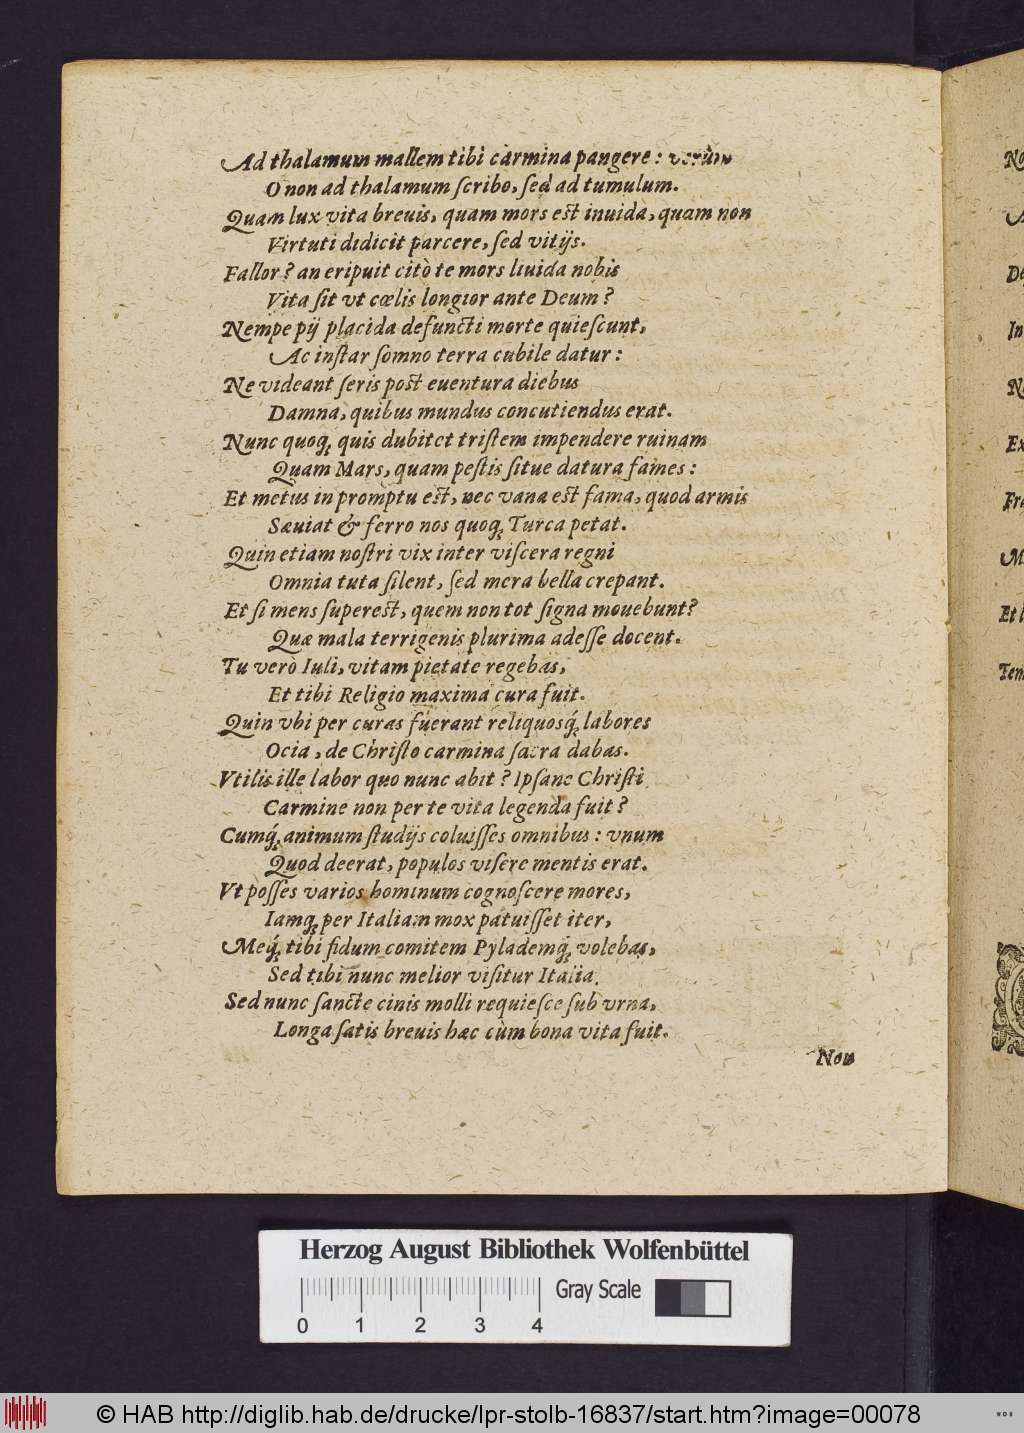 Ad thalamum mallem tibi càrmina pangere : verùm
O non ad thalamum ſcribo, ſed ad tumulum.
Quam lux vita breuis, quam mors eſt inuida, quam non
Virtuti didicit parcere, ſed vitijs.
Fallor? an eripuit citò te mors liuida nobis
Vita ſit vt cœlis longior ante Deum?
Nempe pij placida defuncti morte quieſcunt,
Ac inſtar ſomno terra cubile datur :
Ne videant ſeris poſt euentura diebus
Damna, quibus mundus concutiendus erat.
Nunc quoq; quis dubitet triſtem impendere ruinam
Quam Mars, quam peſtis ſitue datura fames :
Et metus in promptu eſt, nec vana eſt fama, quod armis
Sæuiat & ferro nos quoq; Turca petat.
Quin etiam noſtri vix inter viſcera regni
Omnia tuta ſilent, ſed mera bella crepant.
Et ſi mens ſupereſt, quem non tot ſigna mouebunt?
Quæ mala terrigenis plurima adeſſe docent.
Tu verò Iuli, vitam pietate regebas,
Et tibi Religio maxima cura fuit.
Quin vbi per curas fuerant reliquosq́; labores
Ocia, de Chriſto carmina ſacra dabas.
Vtilis ille labor quo nunc abit? Ipſane Chriſti
Carmine non per te vita legenda fuit?
Cumq́; animum ſtudijs coluiſſes omnibus : vnum
Quod deerat, populos viſere mentis erat.
Vt poſſes varios hominum cognoſcere mores,
Iamq; per Italiam mox patuiſſet iter,
Meq́; tibi fidum comitem Pylademq́; volebas,
Sed tibi nunc melior viſitur Italia.
Sed nunc ſancte cinis molli requieſce ſub vrna,
Longa ſatis breuis hæc cùm bona vita fuit.
Non
No
In
Ex
Et
Herzog August Bibliothek Wolfenbüttel
0 1 2 3 4 Gray Scale
© HAB http://diglib.hab.de/drucke/lpr-stolb-16837/start.htm?image=00078